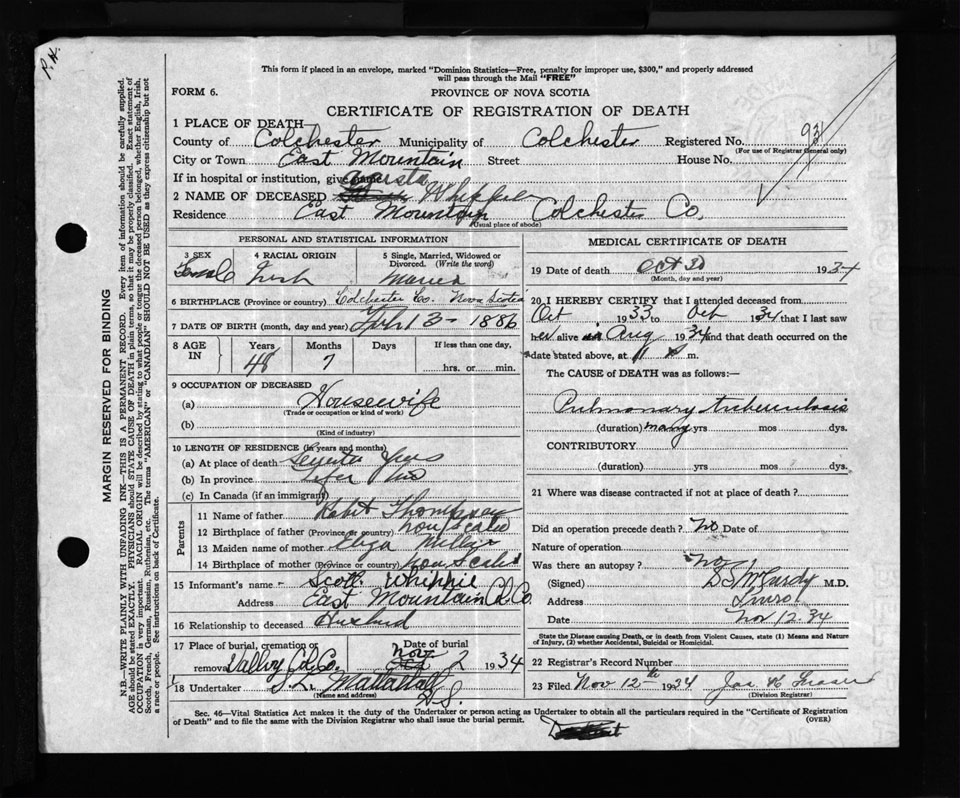 P.H.
This form if placed in an envelope, marked "Dominion Statistics—Free, penalty for improper use, $300," and properly addressed
will pass through the Mail "FREE"
FORM 6.
PROVINCE OF NOVA SCOTIA
CERTIFICATE OF REGISTRATION OF DEATH
1 PLACE OF DEATH—
County of Colchester Municipality of Colchester Registered No. 931
(For use of Registrar General only)
City or Town East Mountain Street House No.
If in hospital or institution, give name
2 NAME OF DECEASED Whippie
Residence East Mountain Colchester Co.
(Usual place of abode)
PERSONAL AND STATISTICAL INFORMATION
3 SEX 4 RACIAL ORIGIN 5 Single, Married, Widowed or
Divorced. (Write the word)
Female Irish Married
6 BIRTHPLACE (Province or country) Colchester Co. Nova Scotia
7 DATE OF BIRTH (month, day and year) 3 - 1886
8 AGE IN Years Months Days If less than one day,
48 7 hrs. or min.
9 OCCUPATION OF DECEASED
(a) Housewife
(Trade or occupation or kind of work)
(b)
(Kind of industry)
10 LENGTH OF RESIDENCE (in years and months)
(a) At place of death
(b) In province
(c) In Canada (if an immigrant)
Parents
11 Name of father Thompson
12 Birthplace of father (Province or country) Nova Scotia
13 Maiden name of mother
14 Birthplace of mother (Province or country) Nova Scotia
15 Informant's name Scott Whippie
Address East Mountain Col. Co.
16 Relationship to deceased Husband
17 Place of burial, cremation or Date of burial
removal Valley Col. Co. Nov 2 1934
18 Undertaker
(Name and address)
N.S.
MEDICAL CERTIFICATE OF DEATH
19 Date of death Oct 30 1934
(Month, day and year)
20 I HEREBY CERTIFY that I attended deceased from
Oct 1933 to Oct 1934 that I last saw
her alive in Aug 1934 and that death occurred on the
date stated above, at m.
The CAUSE of DEATH was as follows:—
Pulmonary tuberculosis
(duration) many yrs mos dys.
CONTRIBUTORY
(duration) yrs mos dys.
21 Where was disease contracted if not at place of death?
Did an operation precede death? No Date of
Nature of operation
Was there an autopsy? No
(Signed) McCurdy M.D.
Address
Date Nov 12. 34
State the Disease causing Death, or in death from Violent Causes, state (1) Means and Nature
of Injury, (2) whether Accidental, Suicidal or Homicidal.
22 Registrar's Record Number
23 Filed Nov 12th 1934 Jas Fraser
(Division Registrar)
Sec. 46—Vital Statistics Act makes it the duty of the Undertaker or person acting as Undertaker to obtain all the particulars required in the "Certificate of Registration
of Death" and to file the same with the Division Registrar who shall issue the burial permit.
(OVER)
MARGIN RESERVED FOR BINDING
N.B.—WRITE PLAINLY WITH UNFADING INK—THIS IS A PERMANENT RECORD. Every item of information should be carefully supplied.
AGE should be stated EXACTLY. PHYSICIANS should STATE CAUSE OF DEATH in plain terms, so that it may be properly classified. Exact statement of
OCCUPATION is very important. RACIAL ORIGIN will be described by stating to what people or tongue the deceased person belonged, whether English, Irish,
Scotch, French, German, Russian, Ruthenian, etc. The terms "AMERICAN" or "CANADIAN" SHOULD NOT BE USED as they express citizenship but not
a race or people. See instructions on back of Certificate.